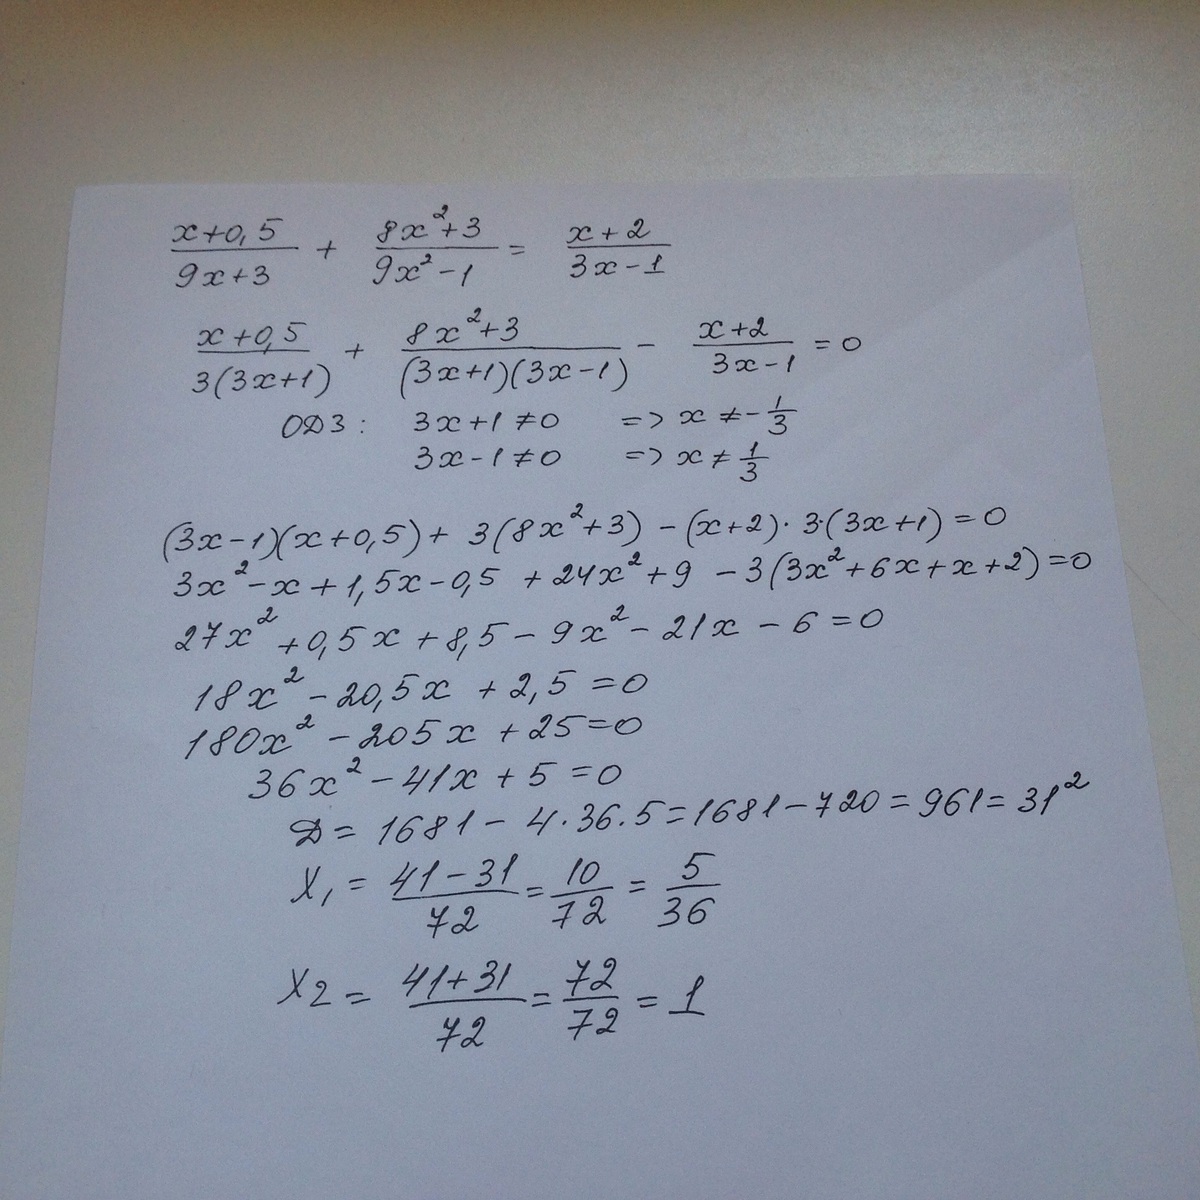 (x+0,5)/(9x+3) + (8x²+3)/(9x²-1) = (x+2)/(3x-1)
(x+0,5)/(3(3x+1)) + (8x²+3)/((3x+1)(3x-1)) - (x+2)/(3x-1) = 0
ОДЗ: 3x+1≠0 => x≠-1/3
3x-1≠0 => x≠1/3
(3x-1)(x+0,5)+ 3(8x²+3) -(x+2)·3·(3x+1)=0
3x²-x+1,5x-0,5 +24x²+9 -3(3x²+6x+x+2)=0
27x²+0,5x+8,5-9x²-21x-6=0
18x²-20,5x+2,5=0
180x²-205x+25=0
36x²-41x+5=0
Д=1681-4·36·5=1681-720=961=31²
x₁=(41-31)/72=10/72=5/36
x₂=(41+31)/72=72/72=1